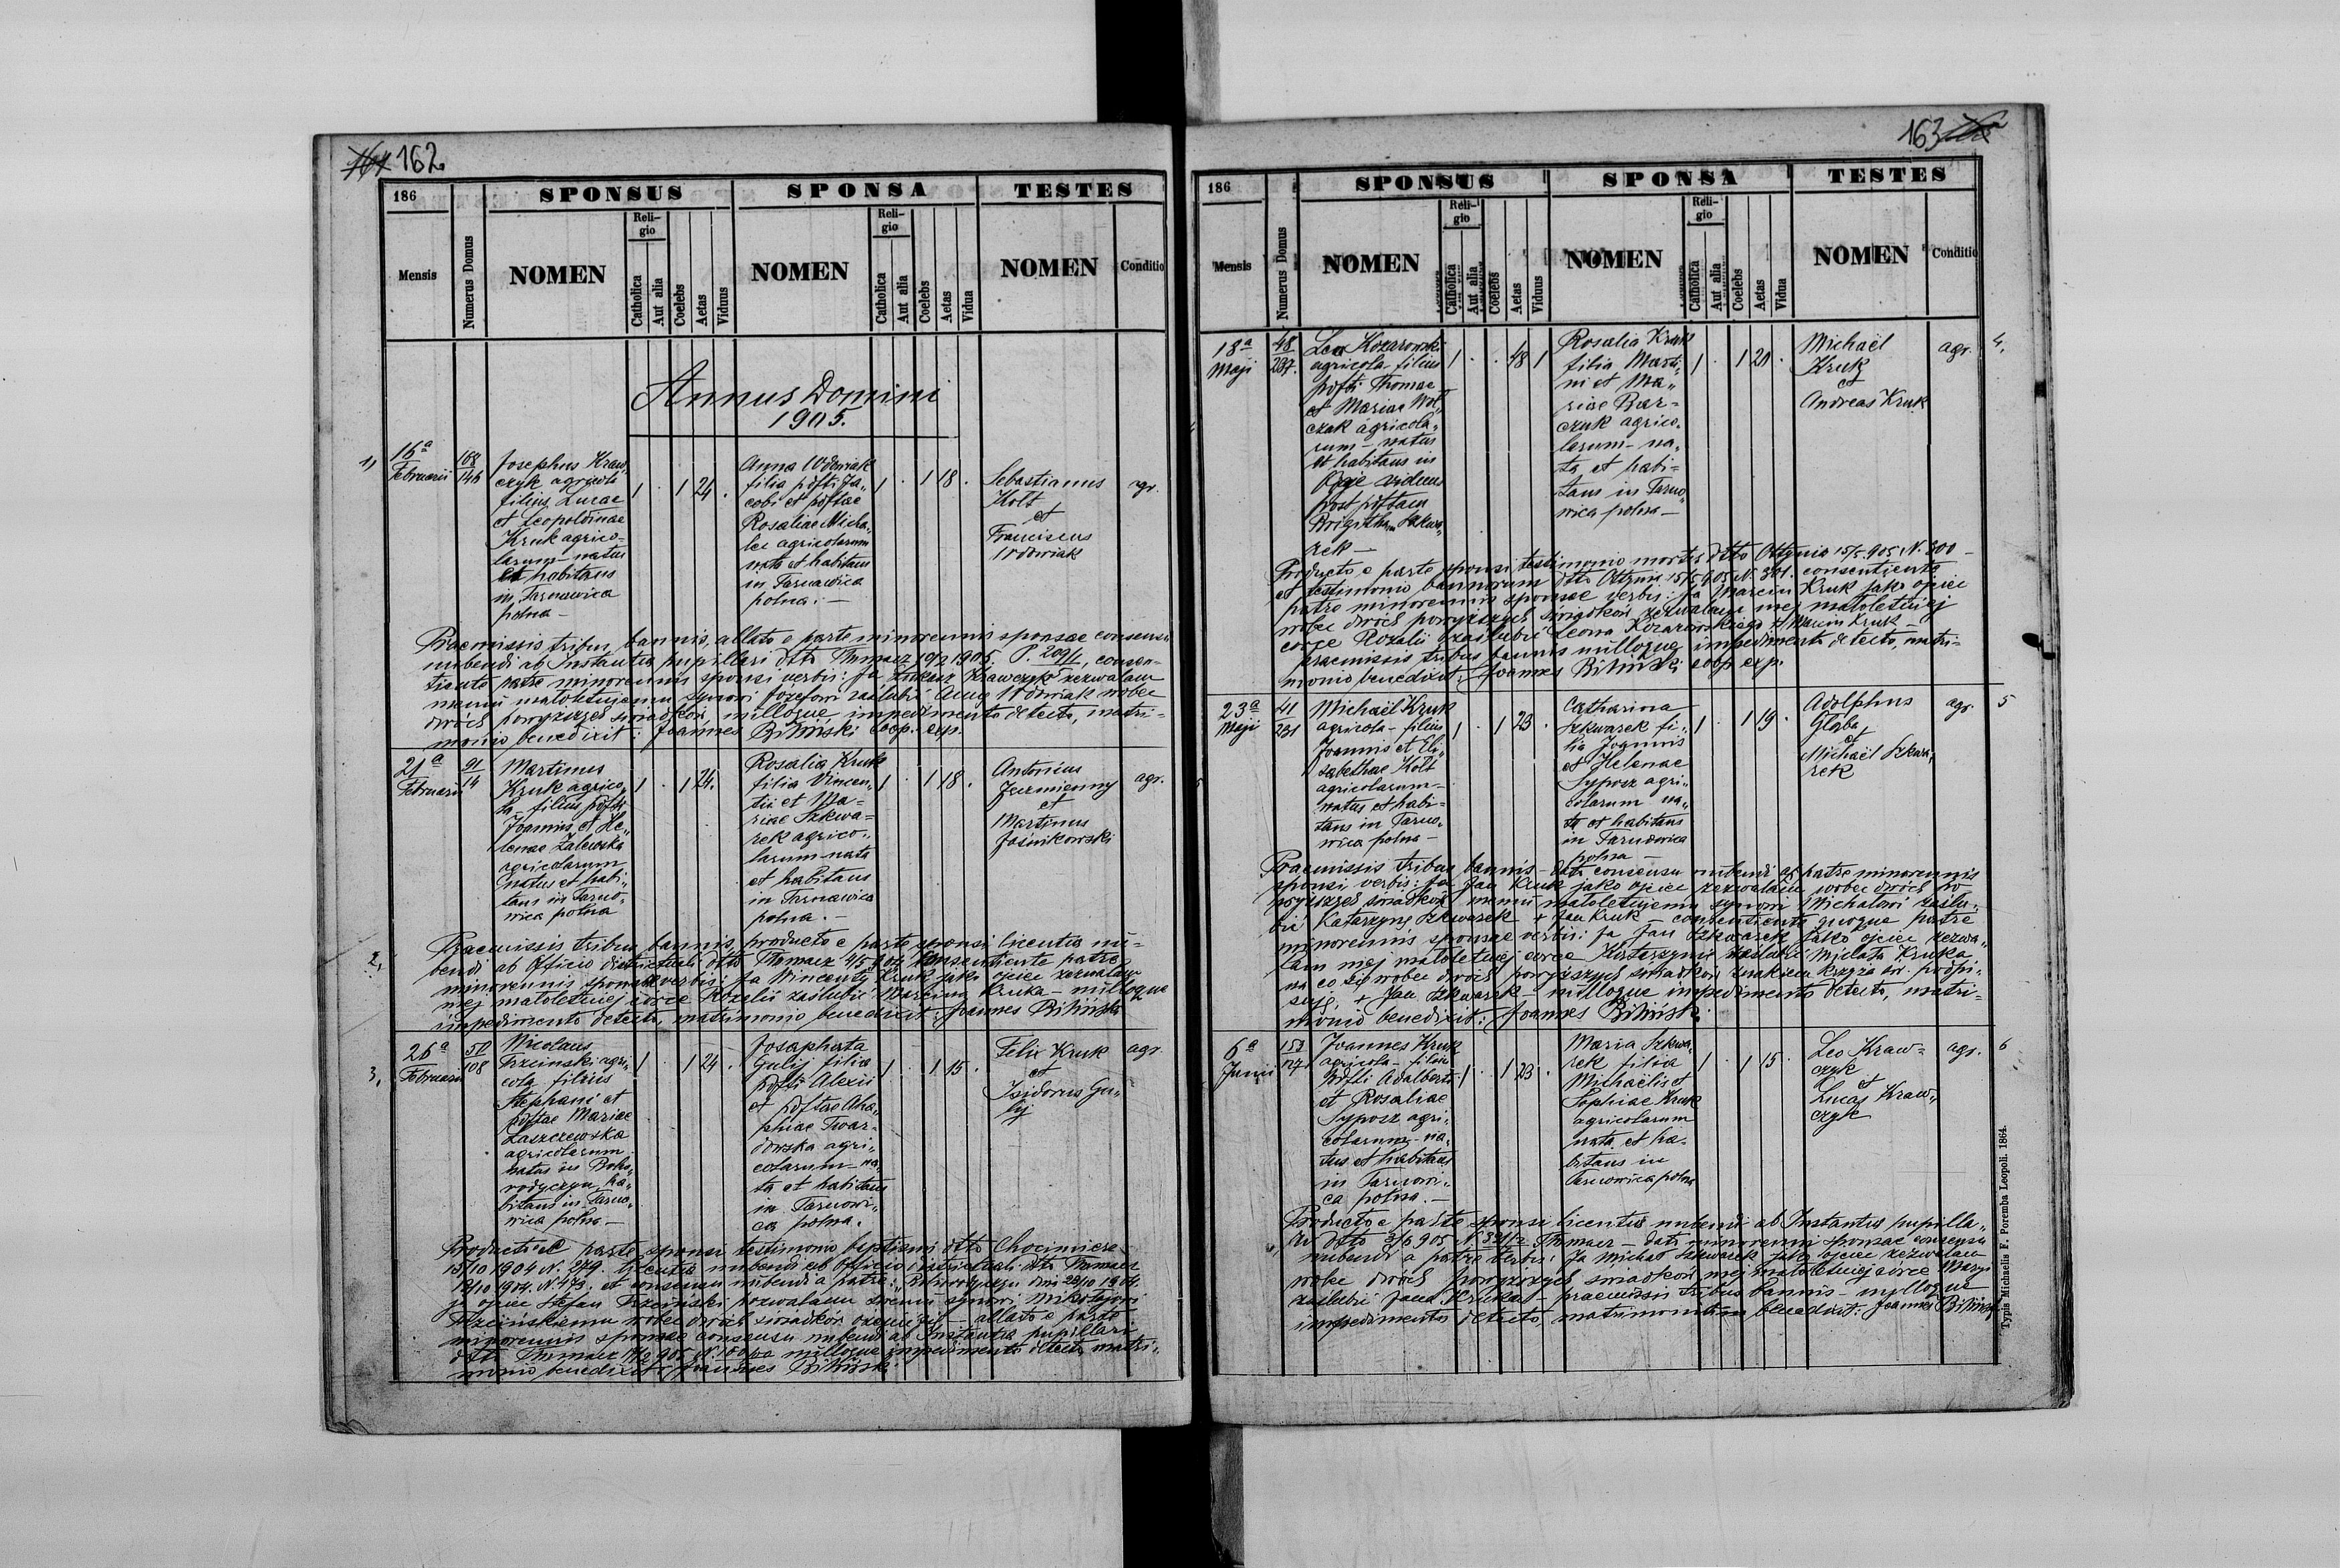 162
186
SPONSUS
SPONSA
TESTES
Mensis
Numerus Domus
NOMEN
Religio
Catholica
Aut alia
Coelebs
Aetas
Viduus
NOMEN
Religio
Catholica
Aut alia
Coelebs
Aetas
Vidua
NOMEN
Conditio
Annus Domini
1905.
1,
16a
Februarii
168
146
Josephus Kraw„
czyk agricola
filius Lucae
et Leopoldinae
Kruk agrico-
larum - natus
et habitans
in Tarnawica
polna -
1 . 1 24 .
Anna Wdowiak
filia pdfti Ja„
cobi et pdftae
Rosaliae Micha„
lec agricolarum
nata et habitans
in Tarnawica
polna. -
1 . 1 18 .
Sebastianus
Kolt
et
Franciscus
Wdowiak
agr.
Praemissis tribus bannis, allato e parte minorennis sponsae consensu
nubendi ab Instantia pupillari dtto Tłumacz 10/2 1905. P. 209/1, consen-
tiente patre minorennis sponsi verbis: Ja Łukasz Krawczyk zezwalam
memu małoletniemu synowi Józefowi zaślubić Annę Wdowiak wobec
dwóch powyższych świadków, nulloque impedimento detecto, matri-
monio benedixit: Joannes Biliński coop. exp.
21a
Februarii
91
14
Martinus
Kruk agrico„
la - filius pdfti
Joannis et He„
lenae Zalewska
agricolarum
natus et habi„
tans in Tarno„
wica polna
1 . 1 24.
Rosalia Kruk
filia Vincen„
tii et Ma-
riae Szkwa-
rek agrico„
larum nata
et habitans
in Tarnawica
polna. -
1 . 1 18 .
Antonius
et
Martinus
Jaśnikowski
agr.
2,
Praemissis tribus bannis, producto e parte sponsi licentia nu-
bendi ab Officio districtuali dtto Tłumacz 4/5 904 consentiente patre
minorennis sponsae verbis: Ja Wincenty Kruk jako ojciec zezwalam
mej małoletniej córce Rozalii zaślubić Marcina Kruka - nulloque
impedimento detecto, matrimonio benedixit: Joannes Biliński
3,
26a
Februarii
50
108
Nicolaus
Trzcinski agri„
cola filius
Stephani et
pdftae Mariae
Łaszczewska
agricolarum
natus in Boho„
rodyczyn, ha„
bitans in Tarno„
wica polna -
1 . 1 24 .
Josaphata
Gulij filia
pdfti Alexii
et pdftae Aha„
phiae Twar-
dowska agri„
colarum - na„
ta et habitans
in Tarnowi„
ca polna.
1 . 1 15 .
Felix Kruk
et
Isidorus Gu„
lij
agr.
Producto e parte sponsi testimonio baptismi dtto Chocimierz
15/10 1904 N. 279. licentia nubendi ab Officio districtuali dtto Tłumacz
N. 473. et consensu nubendi a patre:
ja ojciec Stefan Trzciński pozwalam swemu synowi Mikołajowi
Trzcinskiemu wobec dwóch świadków ożenić się - allato e parte
minorennis sponsae consensu nubendi ab Instantia pupillari
dtto Tłumacz nulloque impedimento detecto matri„
monio benedixit: Joannes Biliński
163
186
SPONSUS
SPONSA
TESTES
Mensis
Numerus Domus
NOMEN
Religio
Catholica
Aut alia
Coelebs
Aetas
Viduus
NOMEN
Religio
Catholica
Aut alia
Coelebs
Aetas
Vidua
NOMEN
Conditio
18a
Maji
48
237.
Leo Kozarowski
agricola filius
pdfti Thomae
et Mariae Wol„
czak agricola„
rum - natus
et habitans in
viduus
post pdftam
Brigitham Szkwa„
rek -
1 . . 48 1
Rosalia Kruk
filia Marti„
ni et Ma„
riae Bar-
czuk agrico„
larum - na„
ta et habi=
tans in Tarno„
wica polna -
1 . 1 20 .
Michaël
Kruk
et
Andreas Kruk
agr.
4,
Producto e parte sponsi testimonio mortis dtto Ottynia 15/5 905 N. 300 -
et testimonio bannorum dtto Ottynia 15/5 905 N. 301. consentiente
patre minorennis sponsae verbis: Ja Marcin Kruk jako ojciec
wobec dwóch powyższych świadków zezwalam mej małoletniej
córce Rozalii zaślubić Leona Kozarowskiego + Marcin Kruk -
praemissis tribus bannis nulloque impedimento detecto, matri-
monio benedixit: Joannes Biliński coop. exp.
23a
Maji
41
231
Michaël Kruk
agricola - filius
Joannis et Eli„
sabethae Kolt
agricolarum -
natus et habi=
tans in Tarno„
wica polna -
1 . 1 23 .
Catharina
Szkwarek fi„
lia Joannis
et Helenae
Syposz agri„
colarum na„
ta et habitans
in Tarnowica
polna -
1 . 1 19 .
Adolphus
Głąba
et
Michaël Szkwa„
rek
agr.
5
Praemissis tribus bannis - dato consensu nubendi a patre minorennis
sponsi verbis: Ja Jan Kruk jako ojciec zezwalam wobec dwóch po
wyższych świadków memu małoletniemu synowi Michałowi zaślu„
bić Katarzynę Szkwarek + Jan Kruk - consentiente quoque patre
minorennis sponsae verbis: Ja Jan Szkwarek jako ojciec zezwa„
lam mej małoletniej córce Katarzynie zaślubić Michała Kruka,
na co się wobec dwóch powyższych świadków znakiem krzyża św. podpi„
suję. + Jan Szkwarek - nulloque impedimento detecto, matri-
monio benedixit: Joannes Biliński
6a
Junii
153
127
Joannes Kruk
agricola - filius
pdfti Adalberti
et Rosaliae
Syposz agri„
colarum - na„
tus et habitans
in Tarnowi„
ca polna. -
1 . 1 23 .
Maria Szkwa„
rek filia
Michaëlis et
Sophiae Kruk
agricolarum
nata et ha-
bitans in
Tarnowica polna
1 . 1 15 .
Leo Kraw-
czyk
et
Lucas Kraw„
czyk
agr.
6
Producto e parte sponsi licentia nubendi ab Instantia pupilla„
ri dtto 3/6 905 Tłumacz - dato minorenni sponsae consensu
nubendi a patre verbis: Ja Michał Szkwarek jako ojciec zezwalam
wobec dwóch powyższych świadków mej małoletniej córce Maryi
zaślubić Jana Kruka - praemissis tribus bannis - nulloque
impedimento detecto, matrimonium benedixit: Joannes Biliński
Typis Michaelis F. Poremba Leopoli. 1864.